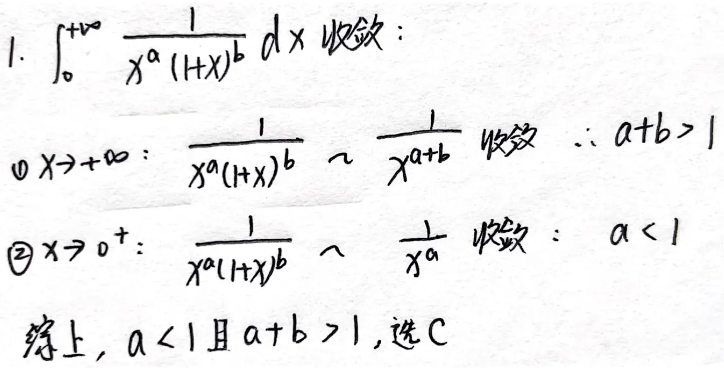 1. ∫₀^{+∞} 1/(x^a (1+x)^b) dx 收敛：
① x→+∞： 1/(x^a(1+x)^b) ~ 1/x^{a+b} 收敛 ∴ a+b>1
② x→0⁺： 1/(x^a(1+x)^b) ~ 1/x^a 收敛： a<1
综上，a<1且a+b>1，选C